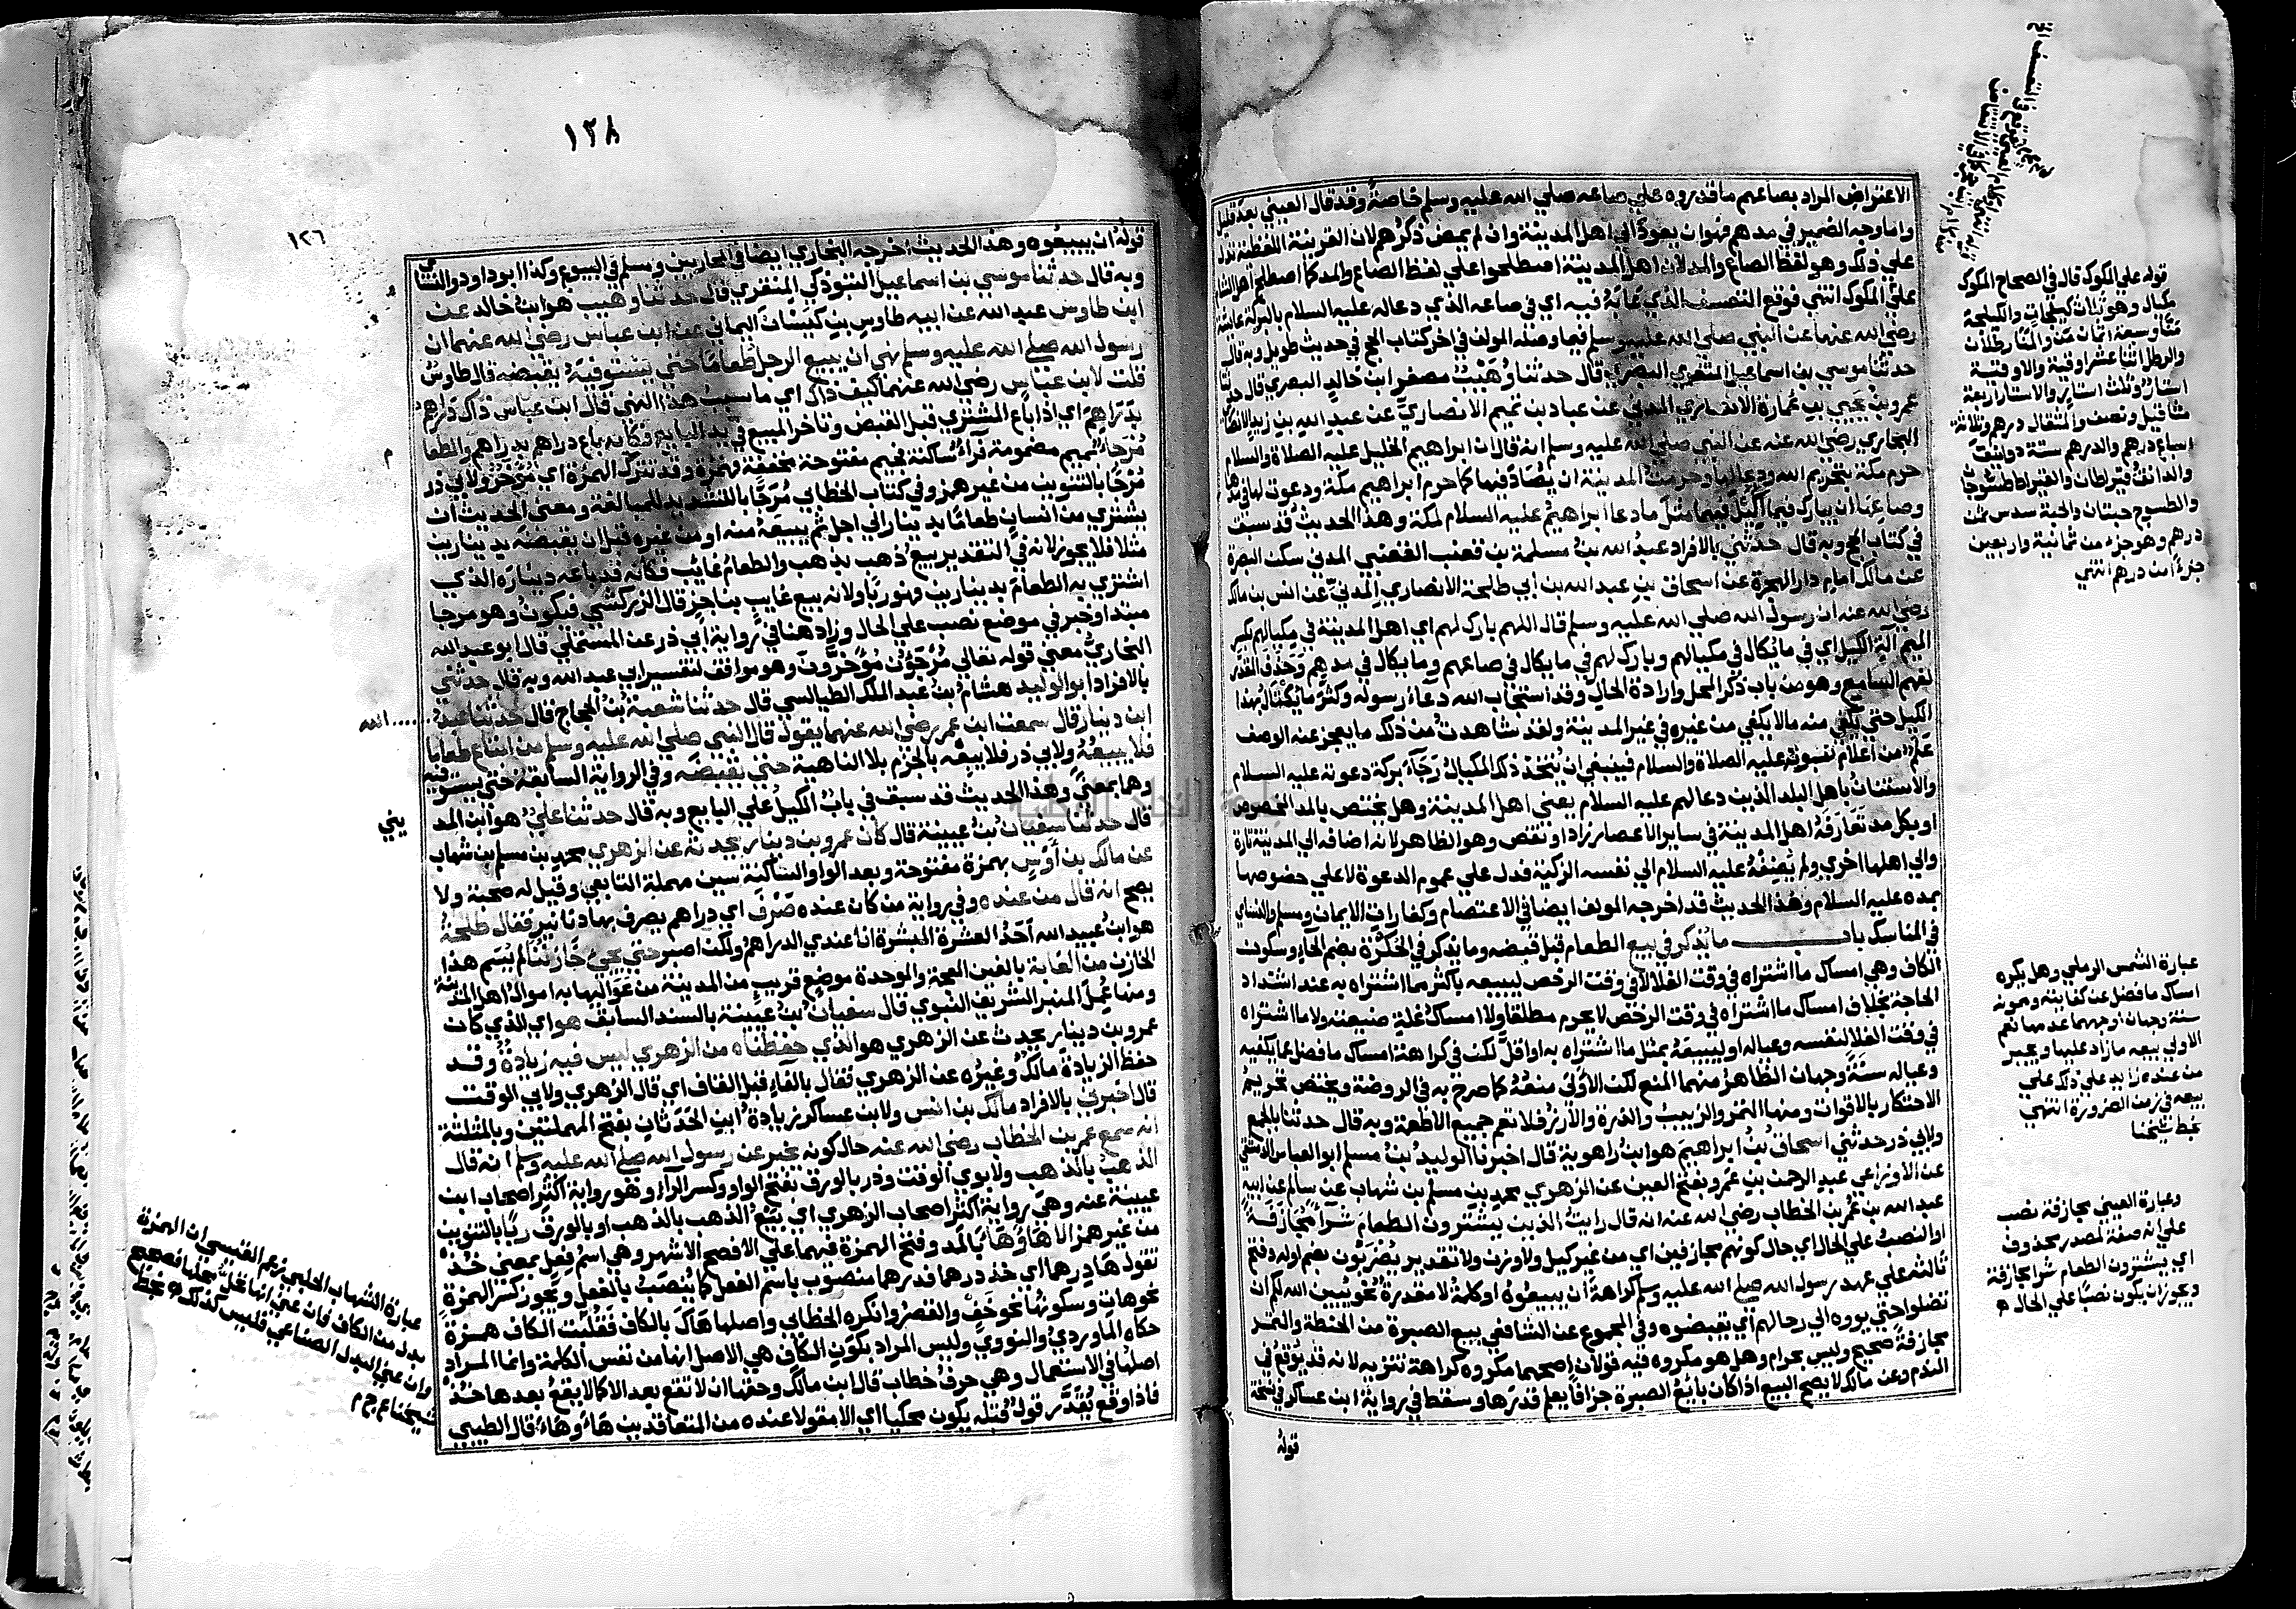 الاعتراض المراد بصاعهم ما قدروه علي صاعه صلي الله عليه وسلم خاصة وقد قال العيني بعد قليل
واما وجه الضمير في مدهم فهو ان يعود الي اهل المدينة وان لم يمض ذكرهم لان القرينة اللفظية تدل
علي ذلك وهو لفظ الصاع والمد لان اهل المدينة اصطلحوا علي لفظ الصاع والمد كما اصطلح اهل الشام
علي المكوك انتهي فوقع التعسف الذي عابه فيه اي في صاعه الذي دعا له عليه السلام بالبركة عائشة
رضي الله عنها عن النبي صلي الله عليه وسلم فيما وصله المولف في اخر كتاب الحج في حديث طويل وبه قال
حدثنا موسي بن اسماعيل المنقري البصري قال حدثنا وُهَيْبٌ مصغر ابن خالد البصري قال حدثنا
عمرو بن يحيي بن عمارة الانصاري المدني عن عباد بن تميم الانصاري عن عبد الله بن زيد الانصاري
البخاري رضي الله عنه عن النبي صلي الله عليه وسلم انه قال ان ابراهيم الخليل عليه الصلاة والسلام
حرم مكة بتحريم الله ودعا لها وحرمت المدينة ان يصاد فيها كما حرم ابراهيم مكة ودعوت لها في مدها
وصاعها ان يبارك فيما كيل فيهما مثل ما دعا ابراهيم عليه السلام لمكة وهذا الحديث قد سبق
في كتاب الحج وبه قال حدثني بالافراد عبد الله بن مسلمة بن قعنب القعنبي المدني سكن البصرة
عن مالك امام دار الهجرة عن اسحاق بن عبد الله بن ابي طلحة الانصاري المدني عن انس بن مالك
رضي الله عنه ان رسول الله صلي الله عليه وسلم قال اللهم بارك لهم اي اهل المدينة في مكيالهم بكسر
الميم آلة الكيل اي في ما يكال في مكيالهم وبارك لهم في ما يكال في صاعهم وما يكال في مدهم وحذف المقدر
لفهم السامع وهو من باب ذكر المحل وارادة الحال وقد استجاب الله دعاء رسوله وكثر ما يكتال بهذا
الكيل حتي يكفي منه مالا يكفي من غيره في غير المدينة ولقد شاهدت من ذلك ما يعجز عنه الوصف
علم من اعلام نبوته عليه الصلاة والسلام فينبغي ان يتخذ ذلك المكيال رجاء بركة دعوته عليه السلام
والاستنان باهل البلد الذين دعا لهم عليه السلام يعني اهل المدينة وهل يختص بالمد المخصوص
او بكل مد تعارفه اهل المدينة في ساير الاعصار زاد او نقص وهو الظاهر لانه اضافه الي المدينة تارة
والي اهلها اخري ولم يضفه عليه السلام الي نفسه الزكية فدل علي عموم الدعوة لا علي خصوصها
بمده عليه السلام وهذا الحديث قد اخرجه المولف ايضا في الاعتصام وكفارات الايمان ومسلم والنساي
في المناسك باب ما يذكر في بيع الطعام قبل قبضه وما يذكر في الحكرة بضم الحاء وسكون
الكاف وهي امساك ما اشتراه في وقت الغلا لا في وقت الرخص ليبيعه باكثر مما اشتراه به عند اشتداد
الحاجة بخلاف امساك ما اشتراه في وقت الرخص لا يحرم مطلقا ولا امساك غلة ضيعته ولا ما اشتراه
في وقت الغلا لنفسه وعياله او ليبيعه بمثل ما اشتراه به او اقل لكن في كراهة امساك ما فضل عما يكفيه
وعياله سنة وجهان الظاهر منهما المنع لكن الاولي منعه كما صرح به في الروضة ويختص تحريم
الاحتكار بالاقوات ومنها التمر والزبيب والذرة والارز فلا تعم جميع الاطعمة وبه قال حدثنا بالجمع
ولابي ذر حدثني اسحاق بن ابراهيم هو ابن راهوية قال اخبرنا الوليد بن مسلم ابو العباس الدمشقي
عن الاوزاعي عبد الرحمن بن عمرو بفتح العين عن الزهري محمد بن مسلم بن شهاب عن سالم عن ابيه
عبد الله بن عمر بن الخطاب رضي الله عنه انه قال رايت الذين يشترون الطعام شراء مجازفة
او النصب علي الحال اي حال كونهم مجازفين اي من غير كيل ولا وزن ولا تقدير يضربون بضم اوله وفتح
ثالثه علي عهد رسول الله صلي الله عليه وسلم كراهة ان يبيعوه او كلمة لا مقدرة نحو يبين الله لكم ان
تضلوا حتي يووه الي رحالهم اي يقبضوه وفي المجموع عن الشافعي بيع الصبرة من الحنطة والتمر
مجازفة صحيح وليس بحرام وهل هو مكروه فيه قولان اصحهما مكروه كراهة تنزيه لانه قد يوقع في
الندم وعن مالك لا يصح البيع اذا كان بائع الصبرة جزافا يعلم قدرها وسقط في رواية ابن عساكر في نسخة
قوله
قوله علي المكوك قال في الصحاح المكوك
مكيال وهو ثلاث كيلجات والكيلجة
منا وسبعة اثمان منا والمنا رطلان
والرطل اثنا عشر اوقية والاوقية
استار وثلثا استار والاستار اربعة
مثاقيل ونصف والمثقال درهم وثلاثة
اسباع درهم والدرهم ستة دوانيق
والدانق قيراطان والقيراط طسوجان
والطسوج حبتان والحبة سدس ثمن
درهم وهو جزء من ثمانية واربعين
جزءا من درهم انتهي
عبارة الشمس الرملي وهل يكره
امساك ما فضل عن كفايته ومونه
سنة وجهان اوجههما عدمها نعم
الاولي بيعه ما زاد عليها ويجبر
من عنده زايد علي ذلك علي
بيعه في زمن الضرورة انتهي
بخط شيخنا
وعبارة العيني مجازفة نصب
علي انه صفة لمصدر محذوف
اي يشترون الطعام شرا مجازفة
ويجوز ان يكون نصبا علي الحال م
١٢٨
١٢٦
قوله ان يبيعوه وهذا الحديث اخرجه البخاري ايضا في المحاربين ومسلم في البيوع وكذا ابو داود والنسائي
وبه قال حدثنا موسي بن اسماعيل التبوذكي المنقري قال حدثنا وهيب هو ابن خالد عن
ابن طاوس عبد الله عن ابيه طاوس بن كيسان اليماني عن ابن عباس رضي الله عنهما ان
رسول الله صلي الله عليه وسلم نهي ان يبيع الرجل طعاما حتي يستوفيه يقبضه قال طاوس
قلت لابن عباس رضي الله عنهما كيف ذاك اي ما سبب هذا النهي قال ابن عباس ذاك دراهم
بدراهم اي اذا باع المشتري قبل القبض وتاخر المبيع في يد البايع فكانه باع دراهم بدراهم والطعام
مُرْجأ بميم مضمومة فراء ساكنة فجيم مفتوحة مخففة فهمزة وقد تترك الهمزة اي مؤخر ولابي ذر
مُرْجًا بالتنوين من غير همز وفي كتاب الخطابي مُرَجًّا بالتشديد للمبالغة ومعني الحديث ان
يشتري من انسان طعاما بدينار الي اجل ثم يبيعه منه او من غيره قبل ان يقبضه بدينارين
مثلا فلا يجوز لانه في التقدير بيع ذهب بذهب والطعام غائب فكانه قد باعه ديناره الذي
اشتري به الطعام بدينارين فهو ربا ولانه بيع غايب بناجز قال الزركشي فيكون وهو مرجا
مبتدا وخبر في موضع نصب علي الحال وزاد هنا في رواية ابي ذر عن المستملي قال ابو عبد الله
البخاري معني قوله تعالي مُرْجَوْن مُؤَخَّرون وهو موافق لتفسير ابي عبد الله وبه قال حدثني
بالافراد ابو الوليد هشام بن عبد الملك الطيالسي قال حدثنا شعبة بن الحجاج قال حدثنا عبد الله
ابن دينار قال سمعت ابن عمر رضي الله عنهما يقول قال النبي صلي الله عليه وسلم من ابتاع طعاما
فلا يبيعه ولابي ذر فلا يبعه بالجزم بلا الناهية حتي يقبضه وفي الرواية السابقة حتي يستوفيه
وهما بمعني وهذا الحديث قد سبق في باب الكيل علي البايع وبه قال حدثنا علي هو ابن المديني
قال حدثنا سفيان بن عيينة قال كان عمرو بن دينار يحدثه عن الزهري محمد بن مسلم بن شهاب
عن مالك بن أوس بهمزة مفتوحة وبعد الواو الساكنة سين مهملة التابعي وقيل له صحبة ولا
يصح انه قال من عنده وفي رواية من كان عنده صَرْف اي دراهم يصرف بها دنانير فقال طلحة
هو ابن عبيد الله احد العشرة المبشرة انا عندي الدراهم ولكن اصبر حتي يجيء خازننا لم يسم هذا
الخازن من الغابة بالغين المعجمة والموحدة موضع قريب من المدينة من عواليها به اموال اهل المدينة
ومنها عمل المنبر الشريف النبوي قال سفيان بن عيينة بالسند السابق هو اي الذي كان
عمرو بن دينار يحدث عن الزهري هو الذي حفظناه من الزهري ليس فيه زيادة وقد
حفظ الزيادة مالك وغيره عن الزهري فقال بالفاء قبل القاف اي قال الزهري ولابي الوقت
قال اخبرني بالافراد مالك بن انس ولابن عساكر زيادة ابن الحدثان بفتح المهملتين وبالمثلثة
انه سمع عمر بن الخطاب رضي الله عنه حال كونه يخبر عن رسول الله صلي الله عليه وسلم انه قال
الذهب بالذهب ولابوي الوقت وذر بالورق بفتح الواو وكسر الراء وهو رواية اكثر اصحاب ابن
عيينة عنه وهي رواية اكثر اصحاب الزهري اي بيع الذهب بالذهب او بالورق ربًا بالتنوين
من غير همز الا هاءَ وهاءَ بالمد وفتح الهمزة فيهما علي الافصح الاشهر وهي اسم فعل بمعني خذ
تقول ها درهما اي خذ درهما فدرهما منصوب باسم الفعل كما ينصب بالفعل ويجوز كسر الهمزة
نحو هات وسكونها نحو خف والقصر وانكره الخطابي واصلها هاك بالكاف فقلبت الكاف همزة
حكاه الماوردي والنووي وليس المراد بكون الكاف هي الاصل انها من نفس الكلمة وانما المراد
اصلها في الاستعمال وهي حرف خطاب قال ابن مالك وحقها ان لا تقع بعد الا كما لا يقع بعدها خذ
فاذا وقع يقدر قول قبله يكون محكيا اي الا مقولا عنده من المتعاقدين هاء وهاء قال الطيبي
عبارة الشهاب الحلبي زعم القتبي ان الهمزة
بدل من الكاف فان عني انها تحل محلها فصحيح
وان عني البدل الصناعي فليس كذلك ه بخط
شيخنا ع ج م